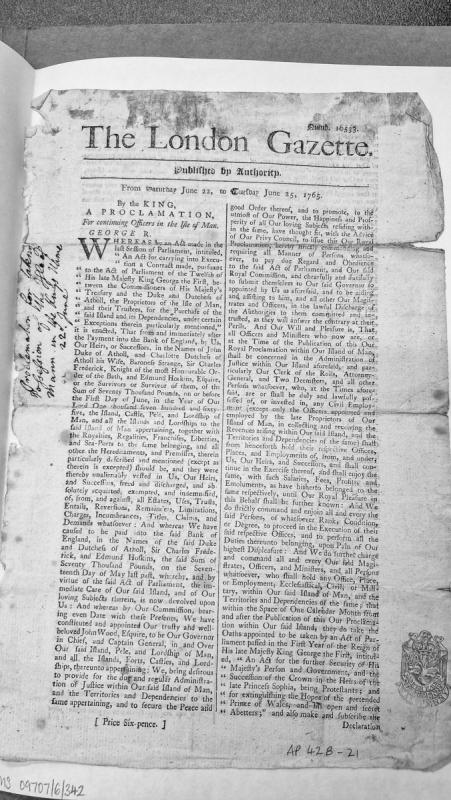 Numb. 10538.
The London Gazette.
Published by Authority.
From Saturday June 22, to Tuesday June 25, 1765.
By the KING,
A PROCLAMATION,
For continuing Officers in the Isle of Man.
GEORGE R.
WHEREAS by an Act made in the
last Session of Parliament, intituled,
" An Act for carrying into Execu-
" tion a Contract made, pursuant
" to the Act of Parliament of the Twelfth of
" His late Majesty King George the First, be-
" tween the Commissioners of His Majesty's
" Treasury and the Duke and Dutchess of
" Atholl, the Proprietors of the Isle of Man,
" and their Trustees, for the Purchase of the
" said Island and its Dependencies, under certain
" Exceptions therein particularly mentioned,"
it is enacted, That from and immediately after
the Payment into the Bank of England, by Us,
Our Heirs, or Successors, in the Names of John
Duke of Atholl, and Charlotte Dutchess of
Atholl his Wife, Baroness Strange, Sir Charles
Frederick, Knight of the most Honourable Or-
der of the Bath, and Edmund Hoskins, Esquire,
or the Survivors or Survivor of them, of the
Sum of Seventy Thousand Pounds, on or before
the First Day of June, in the Year of Our
Lord One thousand seven hundred and sixty-
five, the Island, Castle, Pele, and Lordship of
Man, and all the Islands and Lordships to the
said Island of Man appertaining, together with
the Royalties, Regalities, Franchises, Liberties,
and Sea-Ports to the same belonging, and all
other the Hereditaments, and Premisses, therein
particularly described and mentioned (except as
therein is excepted) should be, and they were
thereby unalienably vested in Us, Our Heirs,
and Successors, freed and discharged, and ab-
solutely acquitted, exempted, and indemnified,
of, from, and against, all Estates, Uses, Trusts,
Entails, Reversions, Remainders, Limitations,
Charges, Incumbrances, Titles, Claims, and
Demands whatsoever: And whereas We have
caused to be paid into the said Bank of
England, in the Names of the said Duke
and Dutchess of Atholl, Sir Charles Frede-
rick, and Edmund Hoskins, the said Sum of
Seventy Thousand Pounds, on the Seven-
teenth Day of May last past, whereby, and by
virtue of the said Act of Parliament, the im-
mediate Care of Our said Island, and of Our
loving Subjects therein, is now devolved upon
Us: And whereas by Our Commission, bear-
ing even Date with these Presents, We have
constituted and appointed Our trusty and well-
beloved John Wood, Esquire, to be Our Governor
in Chief, and Captain General, in and over
Our said Island, Pele, and Lordship of Man,
and all the Islands, Forts, Castles, and Lord-
ships, thereunto appertaining; We, being desirous
to provide for the due and regular Administra-
tion of Justice within Our said Island of Man,
and the Territories and Dependencies to the
same appertaining, and to secure the Peace and
[ Price Six-pence. ]
good Order thereof, and to promote, to the
utmost of Our Power, the Happiness and Pros-
perity of all Our loving Subjects residing with-
in the same, have thought fit, with the Advice
of Our Privy Council, to issue this Our Royal
Proclamation; hereby strictly commanding and
requiring all Manner of Persons whatso-
ever, to pay due Regard and Obedience
to the said Act of Parliament, and Our said
Royal Commission, and chearfully and dutifully
to submit themselves to Our said Governor so
appointed by Us as aforesaid, and to be aiding
and assisting to him, and all other Our Magis-
trates and Officers, in the lawful Discharge of
the Authorities to them committed and in-
trusted, as they will answer the contrary at their
Perils. And Our Will and Pleasure is, That
all Officers and Ministers who now are, or
at the Time of the Publication of this Our
Royal Proclamation within Our Island of Man,
shall be concerned in the Administration of
Justice within Our Island aforesaid, and par-
ticularly Our Clerk of the Rolls, Attorney-
General, and Two Deemsters, and all other
Persons whatsoever, who, at the Times afore-
said, are or shall be duly and lawfully pos-
sessed of, or invested in, any Civil Employ-
ment (except only the Officers appointed and
employed by the late Proprietors of Our
Island of Man, in collecting and receiving the
Revenues arising within Our said Island, and the
Territories and Dependencies of the same) shall
from henceforth hold their respective Offices,
Places, and Employments of, from, and under,
Us, Our Heirs, and Successors, and shall con-
tinue in the Exercise thereof, and shall enjoy the
same, with such Salaries, Fees, Profits, and
Emoluments, as have hitherto belonged to the
same respectively, until Our Royal Pleasure in
this Behalf shall be further known: And We
do strictly command and enjoin all and every the
said Persons, of whatsoever Rank, Condition,
or Degree, to proceed in the Execution of their
said respective Offices, and to perform all the
Duties thereunto belonging, upon Pain of Our
highest Displeasure: And We do further charge
and command all and every Our said Magi-
strates, Officers, and Ministers, and all Persons
whatsoever, who shall hold any Office, Place,
or Employment, Ecclesiastical, Civil, or Mili-
tary, within Our said Island of Man, and the
Territories and Dependencies of the same, that
within the Space of One Calendar Month from
and after the Publication of this Our Proclama-
tion within Our said Island, they do take the
Oaths appointed to be taken by an Act of Par-
liament passed in the First Year of the Reign of
His late Majesty King George the First, intitul-
ed, " An Act for the further Security of His
" Majesty's Person and Government, and the
" Succession of the Crown in the Heirs of the
" late Princess Sophia, being Protestants; and
" for extinguishing the Hopes of the pretended
" Prince of Wales, and his open and secret
" Abettors;" and also make and subscribe the
Declaration
Proclamation
of the
Mann
June
AP 42B-21
MS 09707/6/342